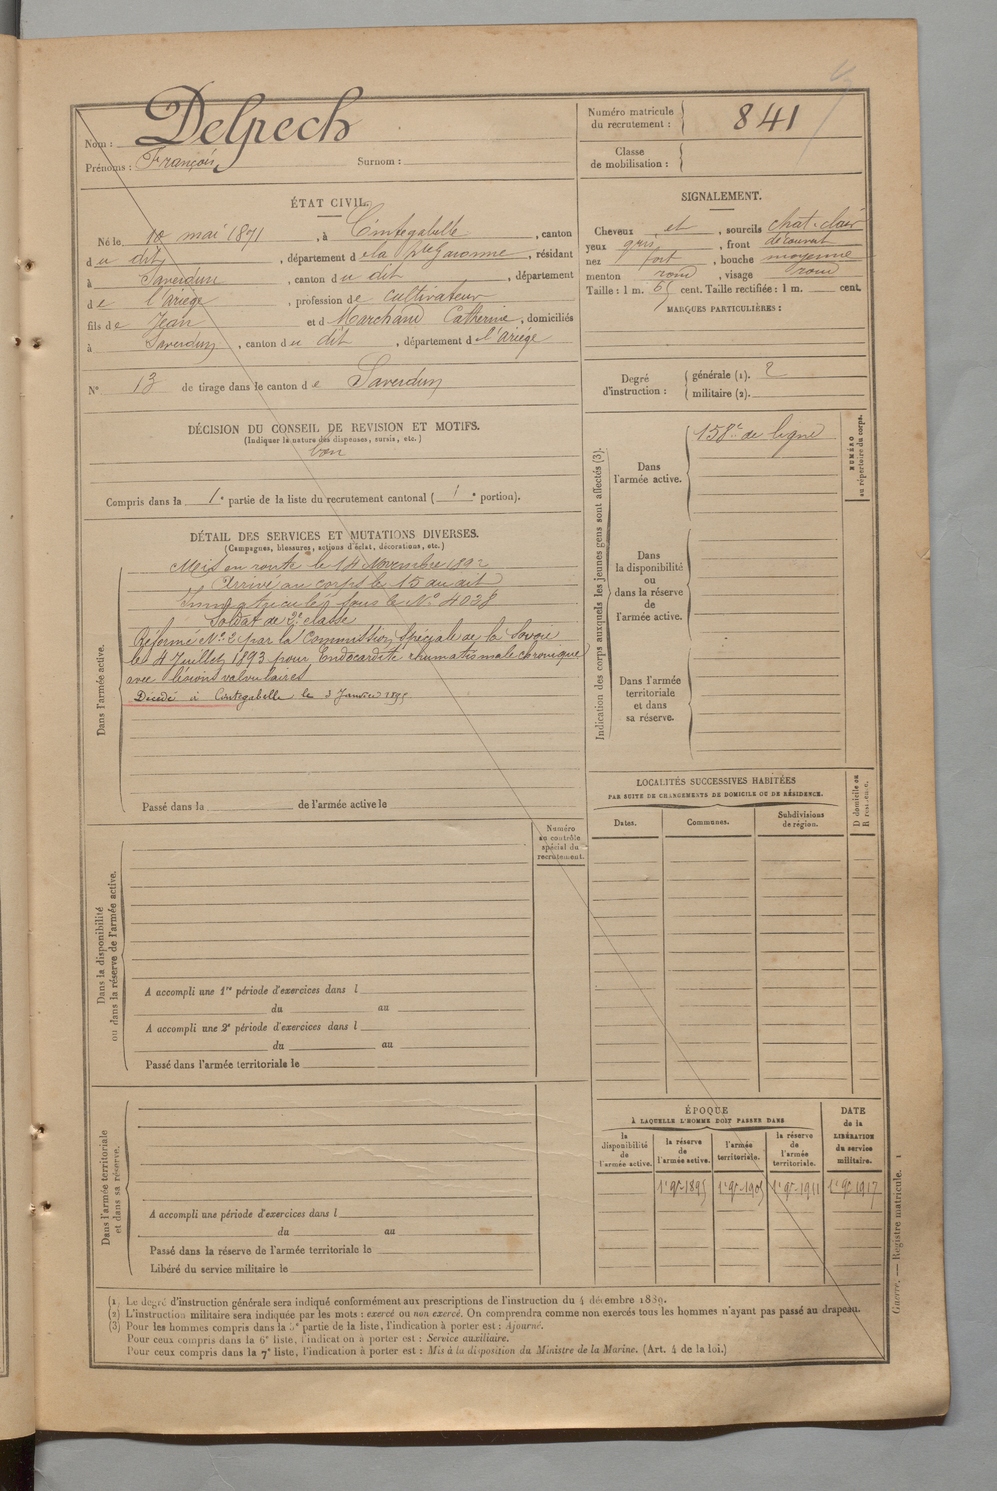 Nom : Delpech
Prénoms : François Surnom :
Numéro matricule
du recrutement : 841
Classe
de mobilisation :
ÉTAT CIVIL.
Né le 10 mai 1871, à Cintegabelle, canton
du dit, département de la Hte Garonne, résidant
à Saverdun, canton du dit, département
de l'Ariège, profession de cultivateur
fils de Jean et d Marchand Catherine, domiciliés
à Saverdun, canton du dit, département d l'Ariège
N° 13 de tirage dans le canton de Saverdun
SIGNALEMENT.
Cheveux et, sourcils chat. clair
yeux gris, front découvert
nez fort, bouche moyenne
menton rond, visage rond
Taille : 1 m. 65 cent. Taille rectifiée : 1 m. cent.
MARQUES PARTICULIÈRES :
Degré
d'instruction :
générale (1). 2
militaire (2).
DÉCISION DU CONSEIL DE REVISION ET MOTIFS.
(Indiquer la nature des dispenses, sursis, etc.)
bon
Compris dans la 1e partie de la liste du recrutement cantonal ( 1e portion).
DÉTAIL DES SERVICES ET MUTATIONS DIVERSES.
(Campagnes, blessures, actions d'éclat, décorations, etc.)
Dans l'armée active.
Mis en route le 14 Novembre 1892
Arrivé au corps le 15 au dit
Immatriculé sous le N° 4038
Soldat de 2e classe
Réformé N° 2 par la Commission Spéciale de la Savoie
le 4 Juillet 1893 pour Endocardite rhumatismale chronique
avec lésions valvulaires
Décédé à Cintegabelle le 3 Janvier 1895
Passé dans la de l'armée active le
Indication des corps auxquels les jeunes gens sont affectés (3).
Dans
l'armée active.
158e de ligne
NUMÉRO
au répertoire du corps.
Dans
la disponibilité
ou
dans la réserve
de
l'armée active.
Dans l'armée
territoriale
et dans
sa réserve.
LOCALITÉS SUCCESSIVES HABITÉES
PAR SUITE DE CHANGEMENTS DE DOMICILE OU DE RÉSIDENCE.
Dates.
Communes.
Subdivisions
de région.
D domicile ou
R résidence.
Numéro
au contrôle
spécial du
recrutement.
Dans la disponibilité
ou dans la réserve de l'armée active.
A accompli une 1re période d'exercices dans l
du au
A accompli une 2e période d'exercices dans l
du au
Passé dans l'armée territoriale le
Dans l'armée territoriale
et dans sa réserve.
A accompli une période d'exercices dans l
du au
Passé dans la réserve de l'armée territoriale le
Libéré du service militaire le
ÉPOQUE
À LAQUELLE L'HOMME DOIT PASSER DANS
la
disponibilité
de
l'armée active.
la réserve
de
l'armée active.
l'armée
territoriale.
la réserve
de
l'armée
territoriale.
DATE
de la
LIBÉRATION
du service
militaire.
1er 9bre 1895 1er 9bre 1905 1er 9bre 1911 1er 9bre 1917
Guerre. — Registre matricule. 1
(1) Le degré d'instruction générale sera indiqué conformément aux prescriptions de l'instruction du 4 décembre 1889.
(2) L'instruction militaire sera indiquée par les mots : exercé ou non exercé. On comprendra comme non exercés tous les hommes n'ayant pas passé au drapeau.
(3) Pour les hommes compris dans la 5e partie de la liste, l'indication à porter est : Ajourné.
Pour ceux compris dans la 6e liste, l'indication à porter est : Service auxiliaire.
Pour ceux compris dans la 7e liste, l'indication à porter est : Mis à la disposition du Ministre de la Marine. (Art. 4 de la loi.)